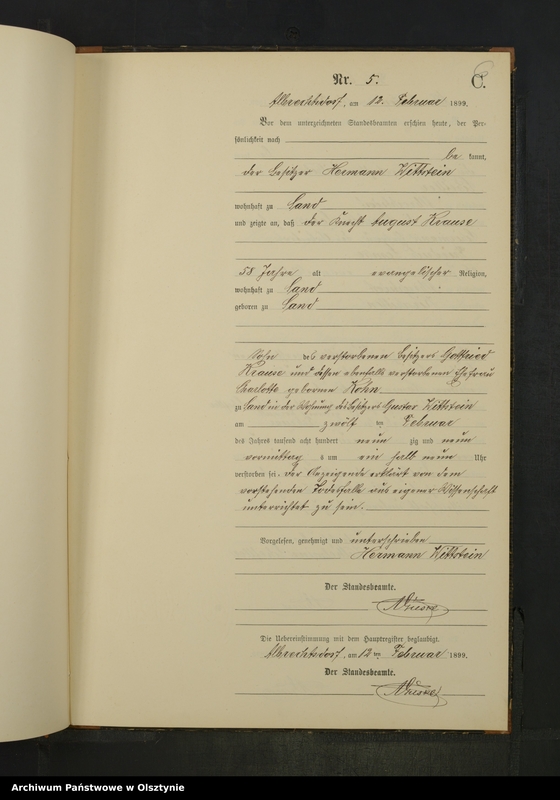 Nr. 5.
C.
Albrechtsdorf, am 12. Februar 1899.
Vor dem unterzeichneten Standesbeamten erschien heute, der Per-
sönlichkeit nach
be kannt,
der Besitzer Hermann Wittstein
wohnhaft zu Sand
und zeigte an, daß der Knecht August Krause
58 Jahre alt evangelischer Religion,
wohnhaft zu Sand
geboren zu Sand
Sohn des verstorbenen Besitzers Gottfried
Krause und dessen ebenfalls verstorbenen Ehefrau
Charlotte geborenen Kohn
zu Sand in der Wohnung des Besitzers Gustav Wittstein
am zwölf ten Februar
des Jahres tausend acht hundert neun zig und neun
vormittags um ein halb neun Uhr
verstorben sei. Der Anzeigende erklärt von dem
vorstehenden Todesfalle aus eigener Wissenschaft
unterrichtet zu sein.
Vorgelesen, genehmigt und unterschrieben
Hermann Wittstein
Der Standesbeamte.
Die Uebereinstimmung mit dem Hauptregister beglaubigt.
Albrechtsdorf, am 12 ten Februar 1899.
Der Standesbeamte.
Archiwum Państwowe w Olsztynie